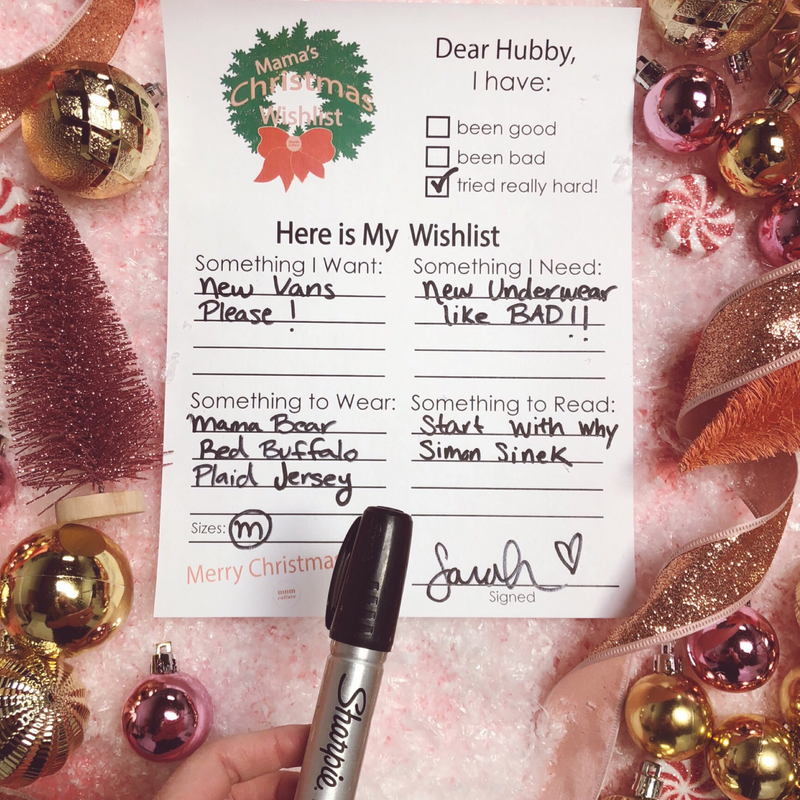 Mama's
Christmas
Wishlist
Dear Hubby,
I have:
been good
been bad
tried really hard!
Here is My Wishlist
Something I Want:
New Vans
Please !
Something I Need:
New Underwear
like BAD!!
Something to Wear:
Mama Bear
Red Buffalo
Plaid Jersey
Sizes: m
Something to Read:
Start with why
Simon Sinek
Merry Christma
mom
culture
Sarah ♡
Signed
Sharpie.